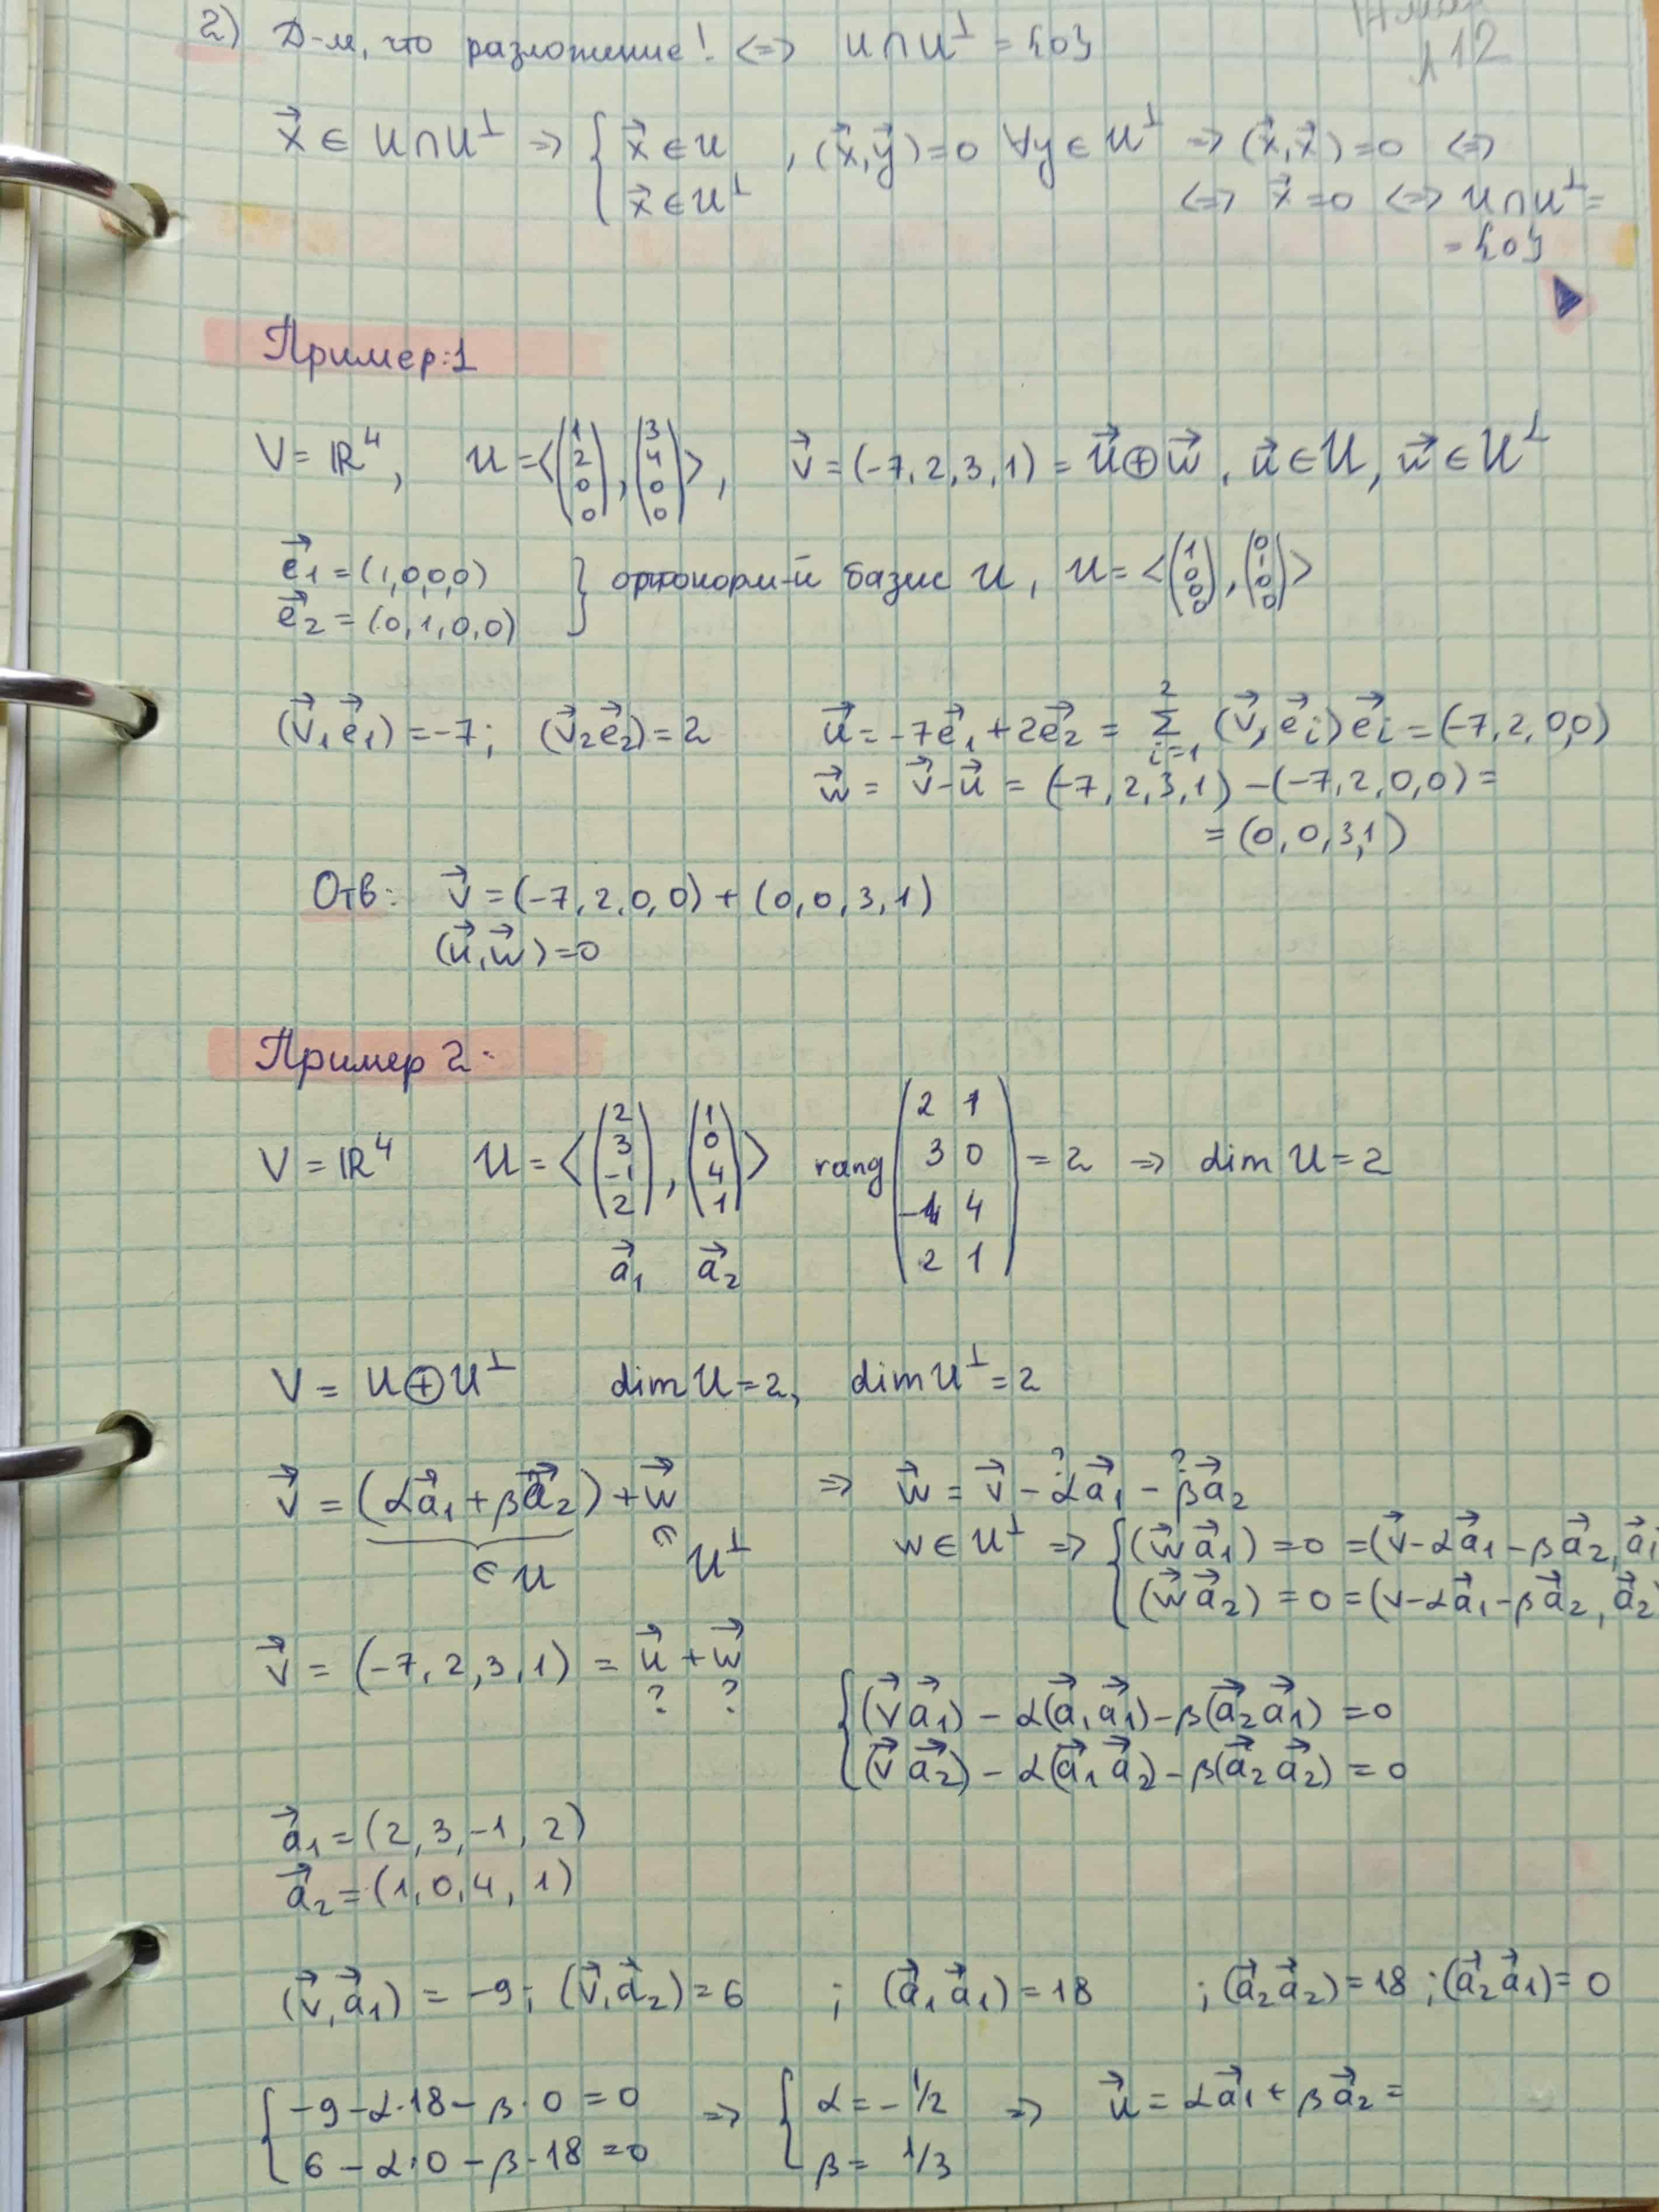 2) Д-м, что разложение! <=> U∩U⊥ = {0}
л12
x⃗ ∈ U∩U⊥ => { x⃗ ∈ U, x⃗ ∈ U⊥ , (x⃗,y⃗)=0 ∀y ∈ U⊥ => (x⃗,x⃗)=0 <=>
<=> x⃗ =0 <=> U∩U⊥ =
= {0}
Пример:1
V = ℝ⁴, U = <(1 2 0 0), (3 4 0 0)>, v⃗ = (-7, 2, 3, 1) = u⃗ ⊕ w⃗, u⃗ ∈ U, w⃗ ∈ U⊥
e⃗₁ = (1,0,0,0)
e⃗₂ = (0,1,0,0) } ортонорм-й базис U, U = <(1 0 0 0), (0 1 0 0)>
(v⃗₁e⃗₁) = -7; (v⃗₂e⃗₂) = 2 u⃗ = -7e⃗₁ + 2e⃗₂ = Σ²ᵢ₌₁ (v⃗, e⃗ᵢ)e⃗ᵢ = (-7, 2, 0,0)
w⃗ = v⃗-u⃗ = (-7, 2, 3, 1) - (-7, 2, 0, 0) =
= (0, 0, 3,1)
Отв: v⃗ = (-7, 2, 0, 0) + (0, 0, 3, 1)
(u⃗, w⃗) = 0
Пример 2:
V = ℝ⁴ U = <(2 3 -1 2), (1 0 4 1)> rang (2 1
3 0
-1 4
2 1) = 2 => dim U = 2
a⃗₁ a⃗₂
V = U ⊕ U⊥ dim U = 2, dim U⊥ = 2
v⃗ = (αa⃗₁ + βa⃗₂) + w⃗ => w⃗ = v⃗ - αa⃗₁ - βa⃗₂
? ?
∈ U ∈ U⊥
w ∈ U⊥ => { (w⃗a⃗₁) = 0 = (v⃗-αa⃗₁ - βa⃗₂, a⃗₁
(w⃗a⃗₂) = 0 = (v-αa⃗₁-βa⃗₂, a⃗₂)
v⃗ = (-7, 2, 3, 1) = u⃗ + w⃗
? ?
{ (v⃗a⃗₁) - α(a⃗₁a⃗₁) - β(a⃗₂a⃗₁) = 0
(v⃗a⃗₂) - α(a⃗₁a⃗₂) - β(a⃗₂a⃗₂) = 0
a⃗₁ = (2, 3, -1, 2)
a⃗₂ = (1, 0, 4, 1)
(v⃗, a⃗₁) = -9; (v⃗, a⃗₂) = 6 ; (a⃗₁a⃗₁) = 18 ; (a⃗₂a⃗₂) = 18 ; (a⃗₂a⃗₁) = 0
{ -9 - α·18 - β·0 = 0 => { α = -1/2 => u⃗ = αa⃗₁ + βa⃗₂ =
6 - α·0 - β·18 = 0 β = 1/3